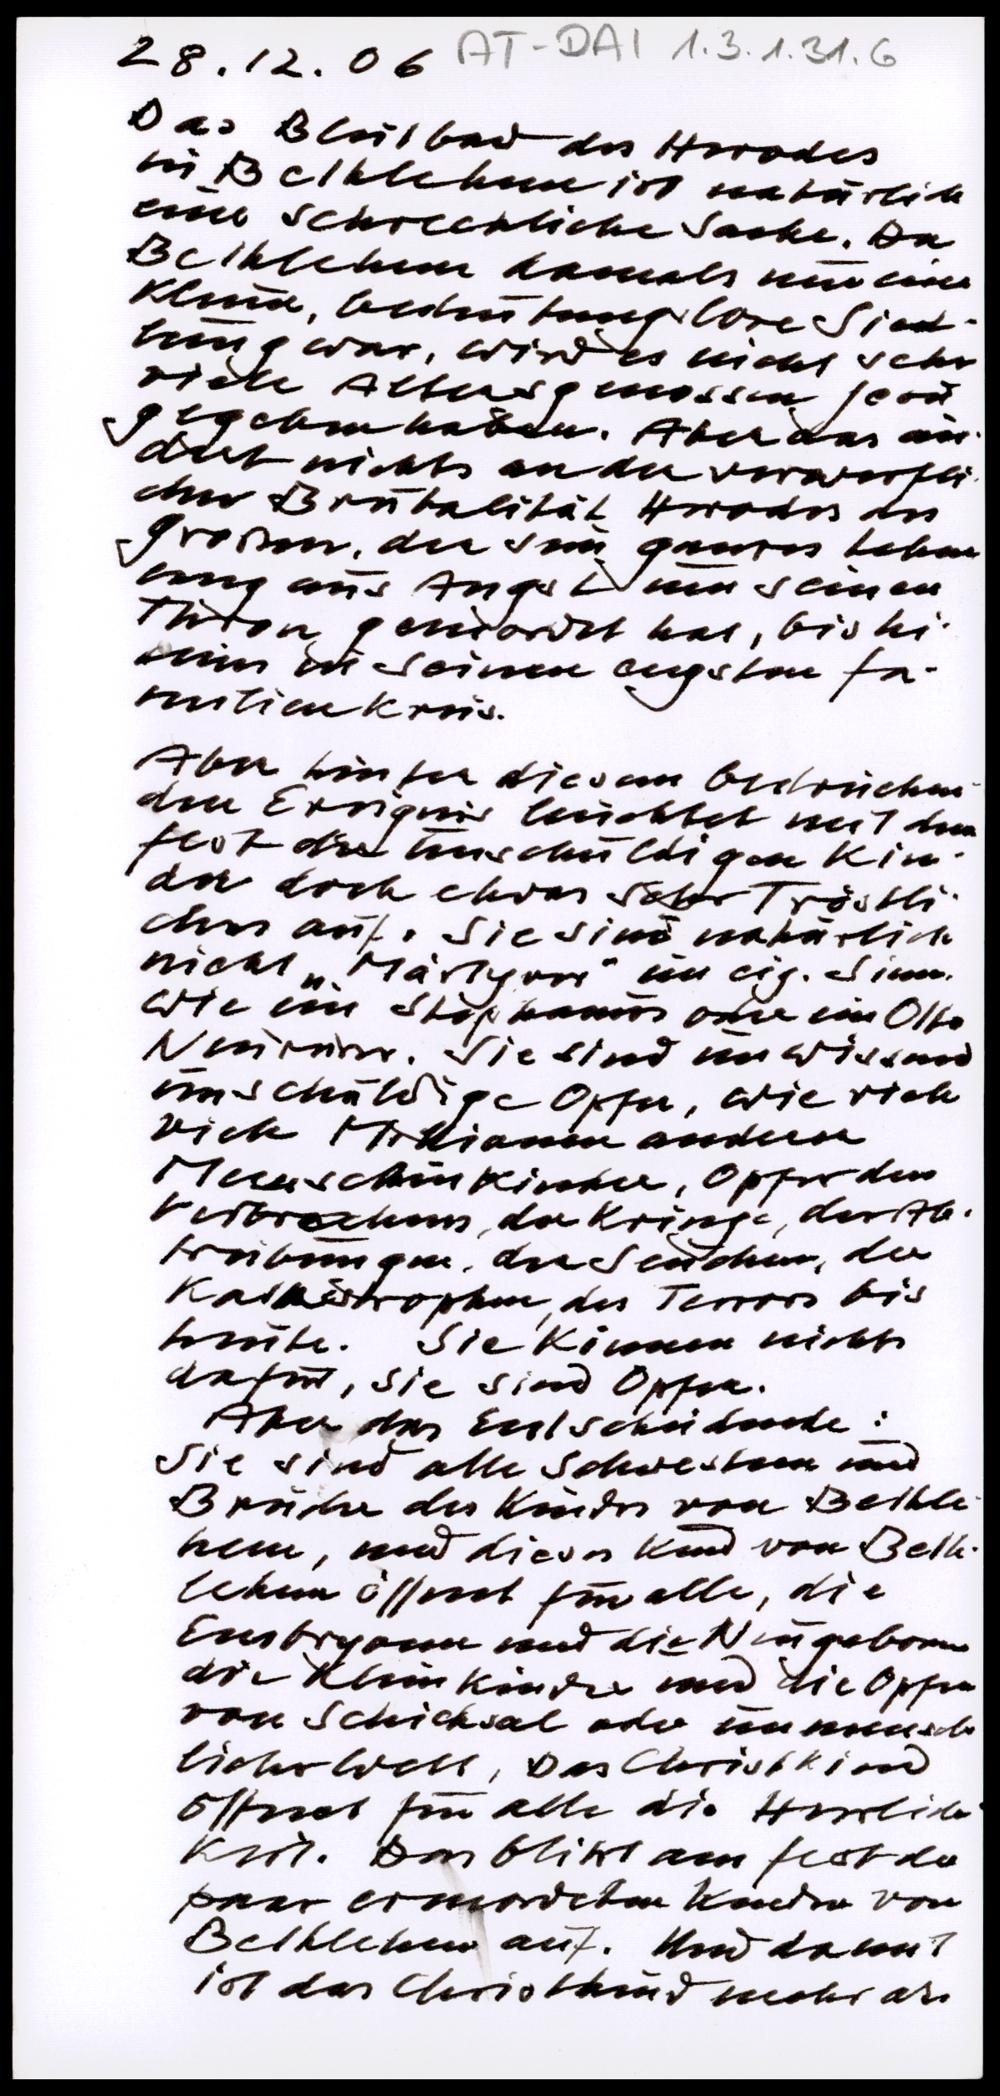 28.12.06 AT-DAI 1.3.1.31.6
Das Blutbad des Herodes
in Bethlehem ist natürlich
eine schreckliche Sache. Da
Bethlehem damals nur eine
kleine, bedeutungslose Sied-
lung war, wird es nicht sehr
viele Altersgenossen Jesu
gegeben haben. Aber das än-
dert nichts an der verwerfli-
chen Brutalität Herodes des
Großen, der sein ganzes Leben
lang aus Angst um seinen
Thron gemordet hat, bis hi-
nein in seinen engsten Fa-
milienkreis.
Aber hinter diesem bedrücken-
den Ereignis leuchtet mit dem
Fest der Unschuldigen Kin-
der doch etwas sehr Tröstli-
ches auf. Sie sind natürlich
nicht „Märtyrer" im eig. Sinn.
wie ein Stephanus oder ein Otto
Neururer. Sie sind unwissend
unschuldige Opfer, wie viele
viele Millionen anderer
Menschenkinder, Opfer des
Verbrechens, der Kriege, der Ab-
treibungen, der Seuchen, der
Katastrophen, des Terrors bis
heute. Sie können nichts
dafür, sie sind Opfer.
Aber das Entscheidende:
Sie sind alle Schwestern und
Brüder des Kindes von Bethle-
hem, und dieses Kind von Beth-
lehem öffnet für alle, die
Embryonen und die Neugeborenen
die Kleinkinder und die Opfer
von Schicksal oder unmensch-
licher Welt, Das Christkind
öffnet für alle die Herrlich-
keit. Das blitzt am Fest der
paar ermordeten Kinder von
Bethlehem auf. Und damit
ist das Christkind mehr als